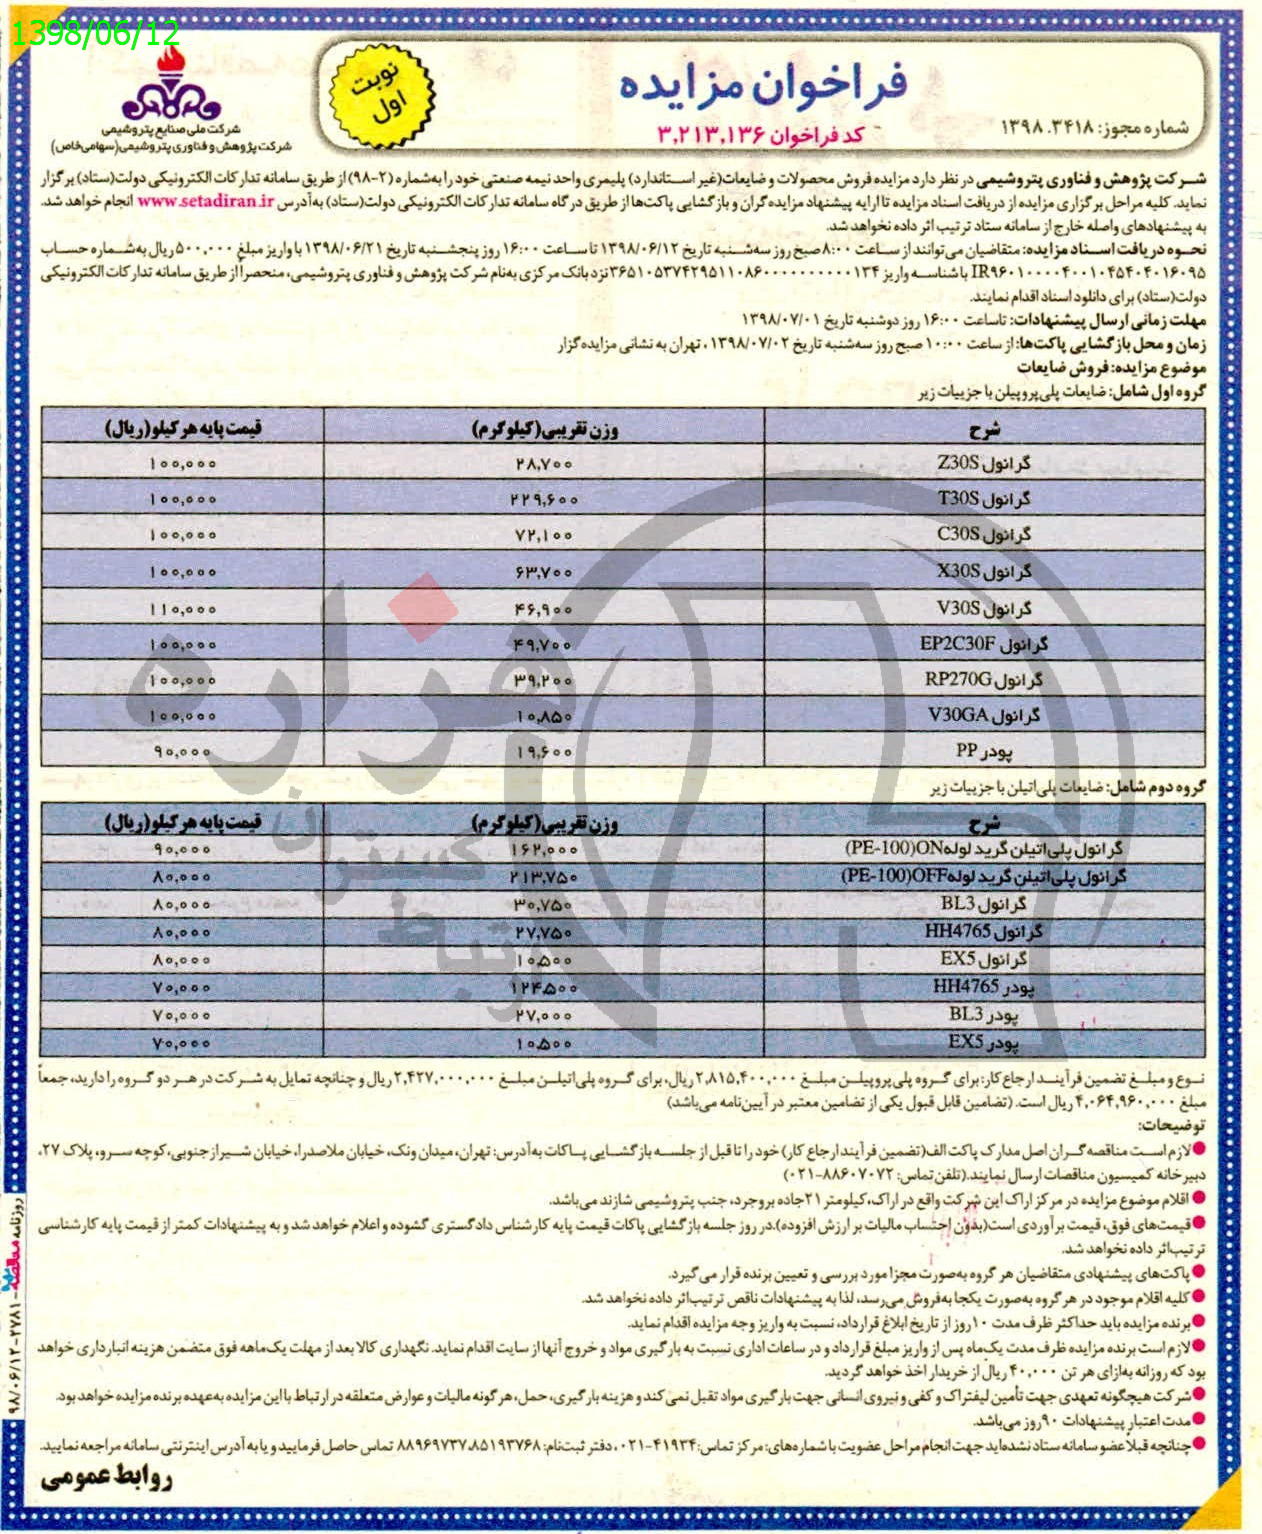 1398/06/12
فراخوان مزایده
کد فراخوان ۳,۲۱۳,۱۳۶
شماره مجوز: ۱۳۹۸.۳۴۱۸
نوبت
اول
شرکت ملی صنایع پتروشیمی
شرکت پژوهش و فناوری پتروشیمی(سهامی خاص)
شرکت پژوهش و فناوری پتروشیمی در نظر دارد مزایده فروش محصولات و ضایعات(غیر استاندارد) پلیمری واحد نیمه صنعتی خود را به‌شماره (۲-۹۸) از طریق سامانه تدارکات الکترونیکی دولت(ستاد) برگزار
نماید. کلیه مراحل برگزاری مزایده از دریافت اسناد مزایده تا ارایه پیشنهاد مزایده‌گران و بازگشایی پاکت‌ها از طریق درگاه سامانه تدارکات الکترونیکی دولت(ستاد) به‌آدرس www.setadiran.ir انجام خواهد شد.
به پیشنهادهای واصله خارج از سامانه ستاد ترتیب اثر داده نخواهد شد.
نحوه دریافت اسناد مزایده: متقاضیان می‌توانند از ساعت ۸:۰۰ صبح روز سه‌شنبه تاریخ ۱۳۹۸/۰۶/۱۲ تا ساعت ۱۶:۰۰ روز پنجشنبه تاریخ ۱۳۹۸/۰۶/۲۱ با واریز مبلغ ۵۰۰,۰۰۰ ریال به‌شماره حساب
IR۹۶۰۱۰۰۰۰۴۰۰۱۰۴۵۴۰۴۰۱۶۰۹۵ با شناسه واریز ۳۶۵۱۰۵۳۷۴۲۹۵۱۱۰۸۶۰۰۰۰۰۰۰۰۰۰۰۱۳۴ نزد بانک مرکزی به‌نام شرکت پژوهش و فناوری پتروشیمی، منحصراً از طریق سامانه تدارکات الکترونیکی
دولت(ستاد) برای دانلود اسناد اقدام نمایند.
مهلت زمانی ارسال پیشنهادات: تا ساعت ۱۶:۰۰ روز دوشنبه تاریخ ۱۳۹۸/۰۷/۰۱
زمان و محل بازگشایی پاکت‌ها: از ساعت ۱۰:۰۰ صبح روز سه‌شنبه تاریخ ۱۳۹۸/۰۷/۰۲ ، تهران به نشانی مزایده‌گزار
موضوع مزایده: فروش ضایعات
گروه اول شامل: ضایعات پلی‌پروپیلن با جزییات زیر
شرح وزن تقریبی(کیلوگرم) قیمت پایه هر کیلو(ریال)
گرانول Z30S ۲۸,۷۰۰ ۱۰۰,۰۰۰
گرانول T30S ۲۲۹,۶۰۰ ۱۰۰,۰۰۰
گرانول C30S ۷۲,۱۰۰ ۱۰۰,۰۰۰
گرانول X30S ۶۳,۷۰۰ ۱۰۰,۰۰۰
گرانول V30S ۴۶,۹۰۰ ۱۱۰,۰۰۰
گرانول EP2C30F ۴۹,۷۰۰ ۱۰۰,۰۰۰
گرانول RP270G ۳۹,۲۰۰ ۱۰۰,۰۰۰
گرانول V30GA ۱۰,۸۵۰ ۱۰۰,۰۰۰
پودر PP ۱۹,۶۰۰ ۹۰,۰۰۰
گروه دوم شامل: ضایعات پلی‌اتیلن با جزییات زیر
شرح وزن تقریبی(کیلوگرم) قیمت پایه هر کیلو(ریال)
گرانول پلی‌اتیلن گرید لوله ON(PE-100) ۱۶۲,۰۰۰ ۹۰,۰۰۰
گرانول پلی‌اتیلن گرید لوله OFF(PE-100) ۲۱۳,۷۵۰ ۸۰,۰۰۰
گرانول BL3 ۳۰,۷۵۰ ۸۰,۰۰۰
گرانول HH4765 ۲۷,۷۵۰ ۸۰,۰۰۰
گرانول EX5 ۱۰,۵۰۰ ۸۰,۰۰۰
پودر HH4765 ۱۲۴,۵۰۰ ۷۰,۰۰۰
پودر BL3 ۲۷,۰۰۰ ۷۰,۰۰۰
پودر EX5 ۱۰,۵۰۰ ۷۰,۰۰۰
نوع و مبلغ تضمین فرآیند ارجاع کار: برای گروه پلی‌پروپیلن مبلغ ۲,۸۱۵,۴۰۰,۰۰۰ ریال، برای گروه پلی‌اتیلن مبلغ ۲,۴۲۷,۰۰۰,۰۰۰ ریال و چنانچه تمایل به شرکت در هر دو گروه را دارید، جمعاً
مبلغ ۴,۰۶۴,۹۶۰,۰۰۰ ریال است. (تضامین قابل قبول یکی از تضامین معتبر در آیین‌نامه می‌باشد)
توضیحات:
● لازم است مناقصه‌گران اصل مدارک پاکت الف(تضمین فرآیند ارجاع کار) خود را تا قبل از جلسه بازگشایی پاکات به‌آدرس: تهران، میدان ونک، خیابان ملاصدرا، خیابان شیراز جنوبی، کوچه سرو، پلاک ۲۷،
دبیرخانه کمیسیون مناقصات ارسال نمایند.(تلفن تماس: ۸۸۶۰۷۰۷۲-۰۲۱)
● اقلام موضوع مزایده در مرکز اراک این شرکت واقع در اراک، کیلومتر ۲۱ جاده بروجرد، جنب پتروشیمی شازند می‌باشد.
● قیمت‌های فوق، قیمت برآوردی است(بدون احتساب مالیات بر ارزش افزوده).در روز جلسه بازگشایی پاکات قیمت پایه کارشناس دادگستری گشوده و اعلام خواهد شد و به پیشنهادات کمتر از قیمت پایه کارشناسی
ترتیب‌اثر داده نخواهد شد.
● پاکت‌های پیشنهادی متقاضیان هر گروه به‌صورت مجزا مورد بررسی و تعیین برنده قرار می‌گیرد.
● کلیه اقلام موجود در هر گروه به‌صورت یکجا به‌فروش می‌رسد، لذا به پیشنهادات ناقص ترتیب‌اثر داده نخواهد شد.
● برنده مزایده باید حداکثر ظرف مدت ۱۰ روز از تاریخ ابلاغ قرارداد، نسبت به واریز وجه مزایده اقدام نماید.
● لازم است برنده مزایده ظرف مدت یک‌ماه پس از واریز مبلغ قرارداد و در ساعات اداری نسبت به بارگیری مواد و خروج آنها از سایت اقدام نماید. نگهداری کالا بعد از مهلت یک‌ماهه فوق متضمن هزینه انبارداری خواهد
بود که روزانه به‌ازای هر تن ۴۰,۰۰۰ ریال از خریدار اخذ خواهد گردید.
● شرکت هیچگونه تعهدی جهت تأمین لیفتراک و کفی و نیروی انسانی جهت بارگیری مواد تقبل نمی‌کند و هزینه بارگیری، حمل، هرگونه مالیات و عوارض متعلقه در ارتباط با این مزایده به‌عهده برنده مزایده خواهد بود.
● مدت اعتبار پیشنهادات ۹۰ روز می‌باشد.
● چنانچه قبلاً عضو سامانه ستاد نشده‌اید جهت انجام مراحل عضویت با شماره‌های: مرکز تماس: ۴۱۹۳۴-۰۲۱، دفتر ثبت‌نام: ۸۸۹۶۹۷۳۷،۸۵۱۹۳۷۶۸ تماس حاصل فرمایید و یا به آدرس اینترنتی سامانه مراجعه نمایید.
روابط عمومی
روزنامه مناقصه - ۲۷۸۱-۹۸/۰۶/۱۲
هزاره
گستران
ارتباط